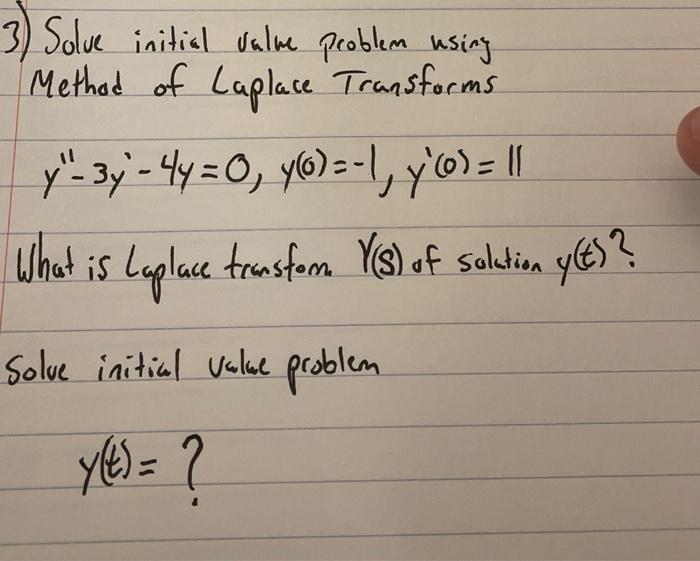 3) Solve initial value problem using
Method of Laplace Transforms
y"-3y'-4y=0, y(0)=-1, y'(0)=11
What is Laplace transform Y(s) of solution y(t)?
Solve initial value problem
y(t)= ?